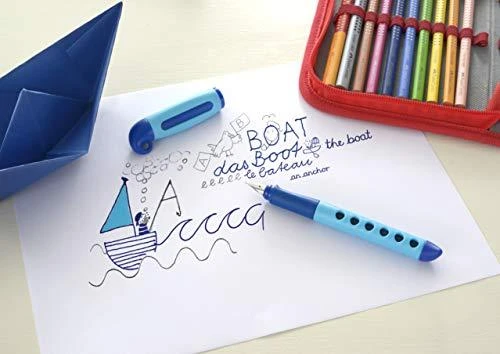 A A B
BOAT
das Boot the boat
lllll le bateau
an anchor
A CCCCG